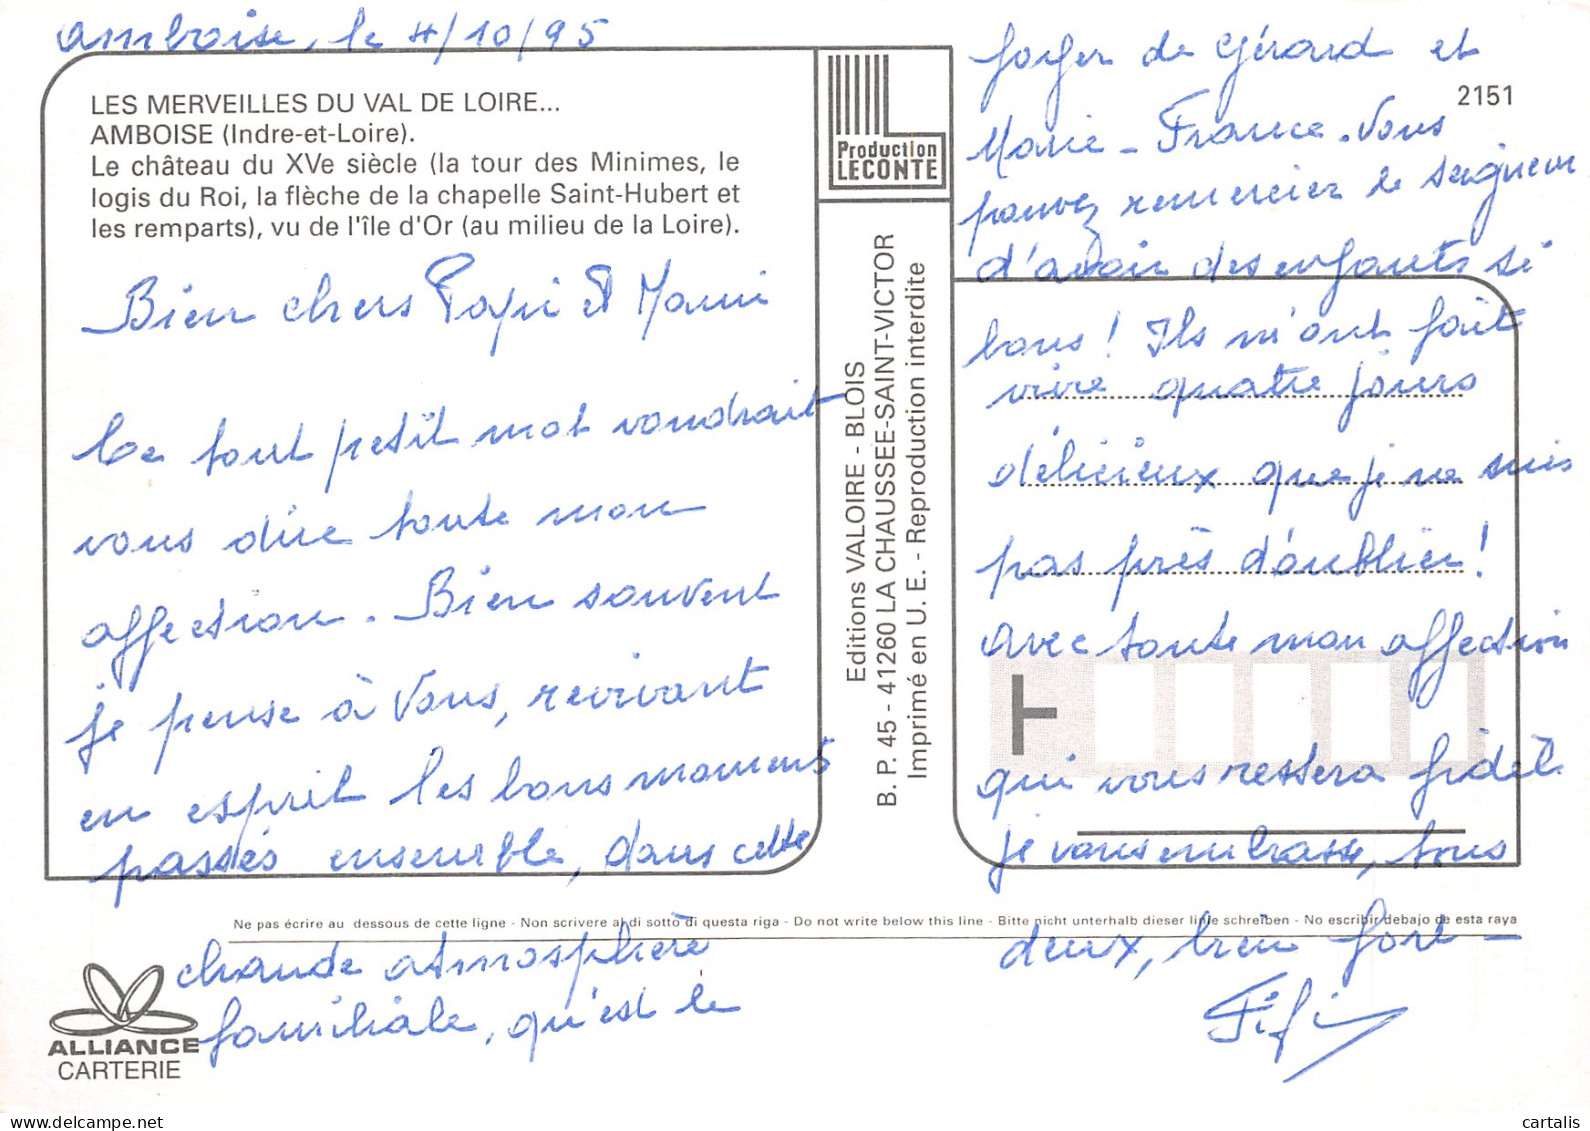 Amboise, le 4/10/95
LES MERVEILLES DU VAL DE LOIRE...
AMBOISE (Indre-et-Loire).
Le château du XVe siècle (la tour des Minimes, le
logis du Roi, la flèche de la chapelle Saint-Hubert et
les remparts), vu de l'île d'Or (au milieu de la Loire).
Bien chers Papi et Mami
Ce tout petit mot voudrait
vous dire toute mon
affection. Bien souvent
je pense à Vous, revivant
en esprit les bons moments
passés ensemble, dans cette
chaude atmosphère
familiale, qu'est le
Production
LECONTE
Editions VALOIRE - BLOIS
B. P. 45 - 41260 LA CHAUSSEE-SAINT-VICTOR
Imprimé en U. E. - Reproduction interdite
2151
foyer de Gérard et
Marie-France. Vous
pouvez remercier le Seigneur
d'avoir des enfants si
bons! Ils m'ont fait
vivre quatre jours
délicieux que je ne suis
pas près d'oublier!
Avec toute mon affection
qui vous restera fidèle
je vous embrasse, tous
deux, bien fort -
Fifi
Ne pas écrire au dessous de cette ligne - Non scrivere al di sotto di questa riga - Do not write below this line - Bitte nicht unterhalb dieser linie schreiben - No escribir debajo de esta raya
ALLIANCE
CARTERIE
cartalis